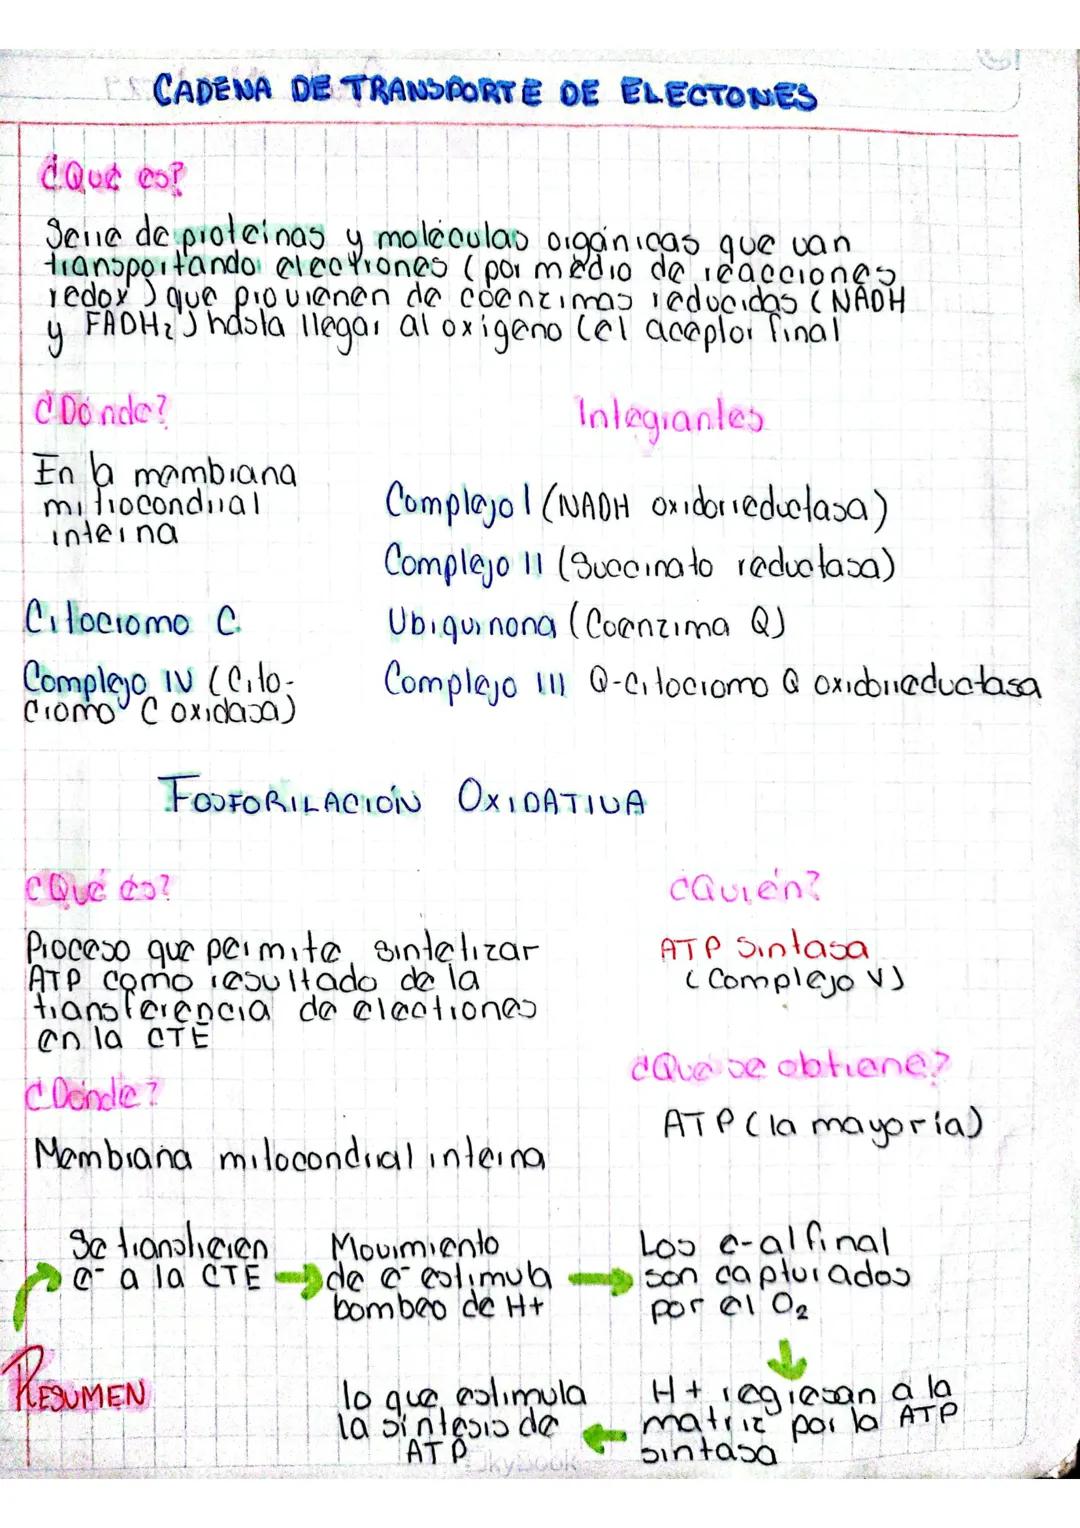 CADENA DE TRANSPORTE DE ELECTONES
¿Qué es?
Serie de proteinas y moléculas orgánicas que van
transportando electrones (por medio de reacciones
redox) que provienen de coenzimas reducidas (NADH
y FADH₂) hasta llegar al oxigeno (el aceptor final
¿Dónde?
En la membrana
mitrocondrial
interna
Integrantes
Complejo I (NADH oxidorreductasa)
Complejo II (Succinato reductasa)
Ubiquinona (Coenzima Q)
Complejo III Q-Citocromo Q oxidorreductasa
Citocromo C
Complejo IV (Cito-
cromo C oxidasa)
FOSFORILACIÓN OXIDATIVA
¿Qué es?
Proceso que permite sintetizar
ATP como resultado de la
transferencia de electrones
en la CTE
¿Quién?
ATP Sintasa
(Complejo V)
¿Dónde?
Membrana mitocondrial interna
¿Que se obtiene?
ATP (la mayoría)
RESUMEN
Se transfieren
e- a la CTE
Movimiento
de e- estimula
bombeo de H+
Los e- al final
son capturados
por el O₂
H+ regresan a la
matriz por la ATP
sintasa
lo que estimula
la síntesis de
ATP